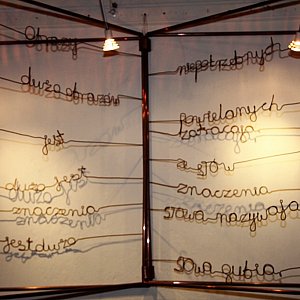 Obrazy
dużo obrazów
jest
dużo jest
znaczenia
jest dużo
niepotrzebnych
powielanych
zatracają
słów
znaczenia
słowa nazywają
słowa gubią